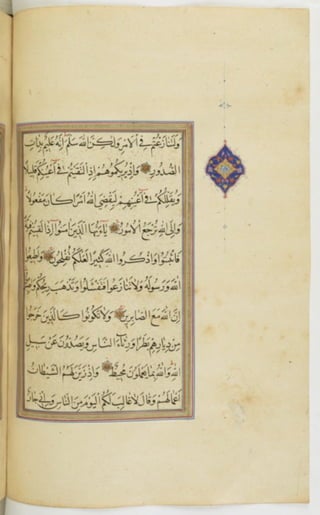 وَلَتَنَازَعْتُمْ فِي الْأَمْرِ وَلَكِنَّ اللهَ سَلَّمَ إِنَّهُ عَلِيمٌ بِذَاتِ
الصُّدُورِ وَإِذْ يُرِيكُمُوهُمْ إِذِ الْتَقَيْتُمْ فِي أَعْيُنِكُمْ قَلِيلًا
وَيُقَلِّلُكُمْ فِي أَعْيُنِهِمْ لِيَقْضِيَ اللهُ أَمْرًا كَانَ مَفْعُولًا
وَإِلَى اللهِ تُرْجَعُ الْأُمُورُ يَا أَيُّهَا الَّذِينَ آمَنُوا إِذَا لَقِيتُمْ فِئَةً
فَاثْبُتُوا وَاذْكُرُوا اللهَ كَثِيرًا لَعَلَّكُمْ تُفْلِحُونَ وَأَطِيعُوا
اللهَ وَرَسُولَهُ وَلَا تَنَازَعُوا فَتَفْشَلُوا وَتَذْهَبَ رِيحُكُمْ وَاصْبِرُوا
إِنَّ اللهَ مَعَ الصَّابِرِينَ وَلَا تَكُونُوا كَالَّذِينَ خَرَجُوا
مِنْ دِيَارِهِمْ بَطَرًا وَرِئَاءَ النَّاسِ وَيَصُدُّونَ عَنْ سَبِيلِ
اللهِ وَاللهُ بِمَا يَعْمَلُونَ مُحِيطٌ وَإِذْ زَيَّنَ لَهُمُ الشَّيْطَانُ
أَعْمَالَهُمْ وَقَالَ لَا غَالِبَ لَكُمُ الْيَوْمَ مِنَ النَّاسِ وَإِنِّي جَارٌ